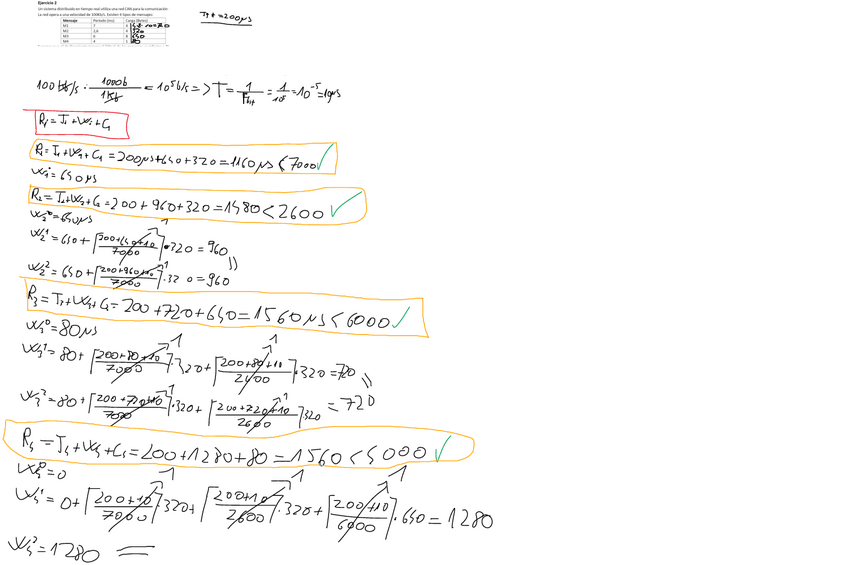 Ejercicio 2
Un sistema distribuido en tiempo real utiliza una red CAN para la comunicación
La red opera a una velocidad de 100Kb/s. Existen 4 tipos de mensajes:
Mensaje Periodo (ms) Carga (Bytes)
M1 7
M2 2,6 320
M3 6 640
M4 4 80
= 200μs
100 kb/s · 1000b / 1kb = 10⁵b/s => T = 1 / Fbit = 1 / 10⁵ = 10⁻⁵ = 10μs
R₁ = J₁ + W₁ + C₁
R₁ = J₁ + W₁ + C₁ = 200μs + 640 + 320 = 1160 μs < 7000 ✓
W₁ = 640 μs
R₂ = J₂ + W₂ + C₂ = 200 + 960 + 320 = 1480 < 2600 ✓
W₂⁰ = 640μs
W₂¹ = 640 + ⌈200+640+10 / 7000⌉ · 320 = 960
W₂² = 640 + ⌈200+960+10 / 7000⌉ · 320 = 960
R₃ = J₃ + W₃ + C₃ = 200 + 720 + 640 = 1560 μs < 6000 ✓
W₃⁰ = 80 μs
W₃¹ = 80 + ⌈200+80+10 / 7000⌉ · 320 + ⌈200+80+10 / 2600⌉ · 320 = 720
W₃² = 80 + ⌈200+720+10 / 7000⌉ · 320 + ⌈200+720+10 / 2600⌉ 320 = 720
R₄ = J₄ + W₄ + C₄ = 200 + 1280 + 80 = 1560 < 4000 ✓
W₄⁰ = 0
W₄¹ = 0 + ⌈200+10 / 7000⌉ · 320 + ⌈200+10 / 2600⌉ · 320 + ⌈200+10 / 6000⌉ · 640 = 1280
W₄² = 1280